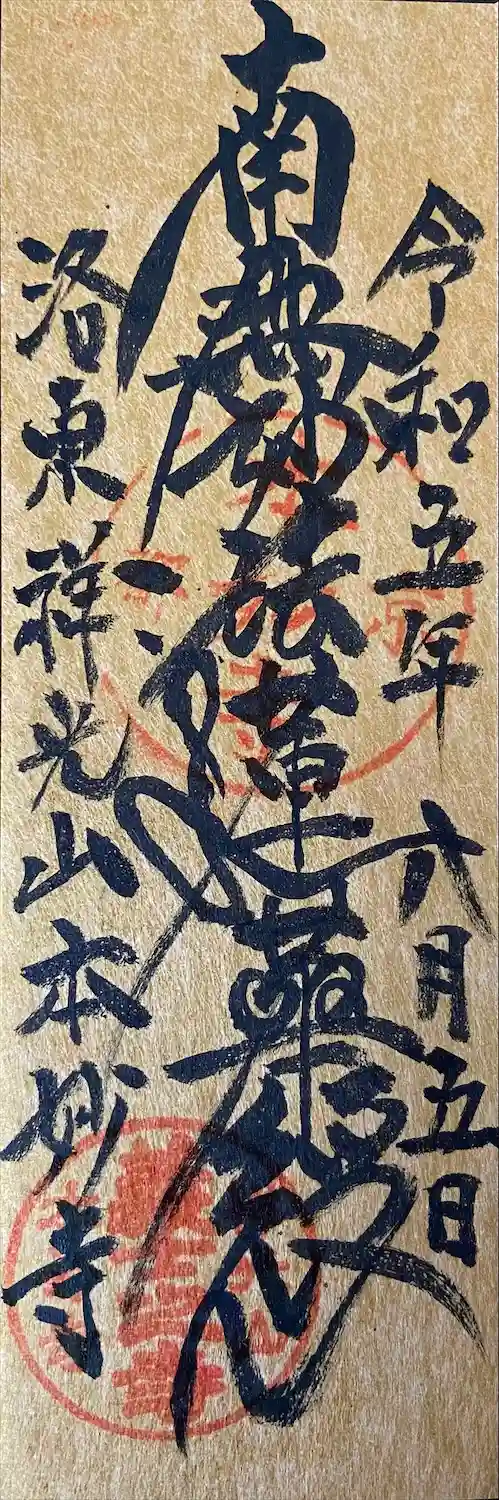 令和五年 六月五日
南無妙法蓮華経
洛東祥光山本妙寺